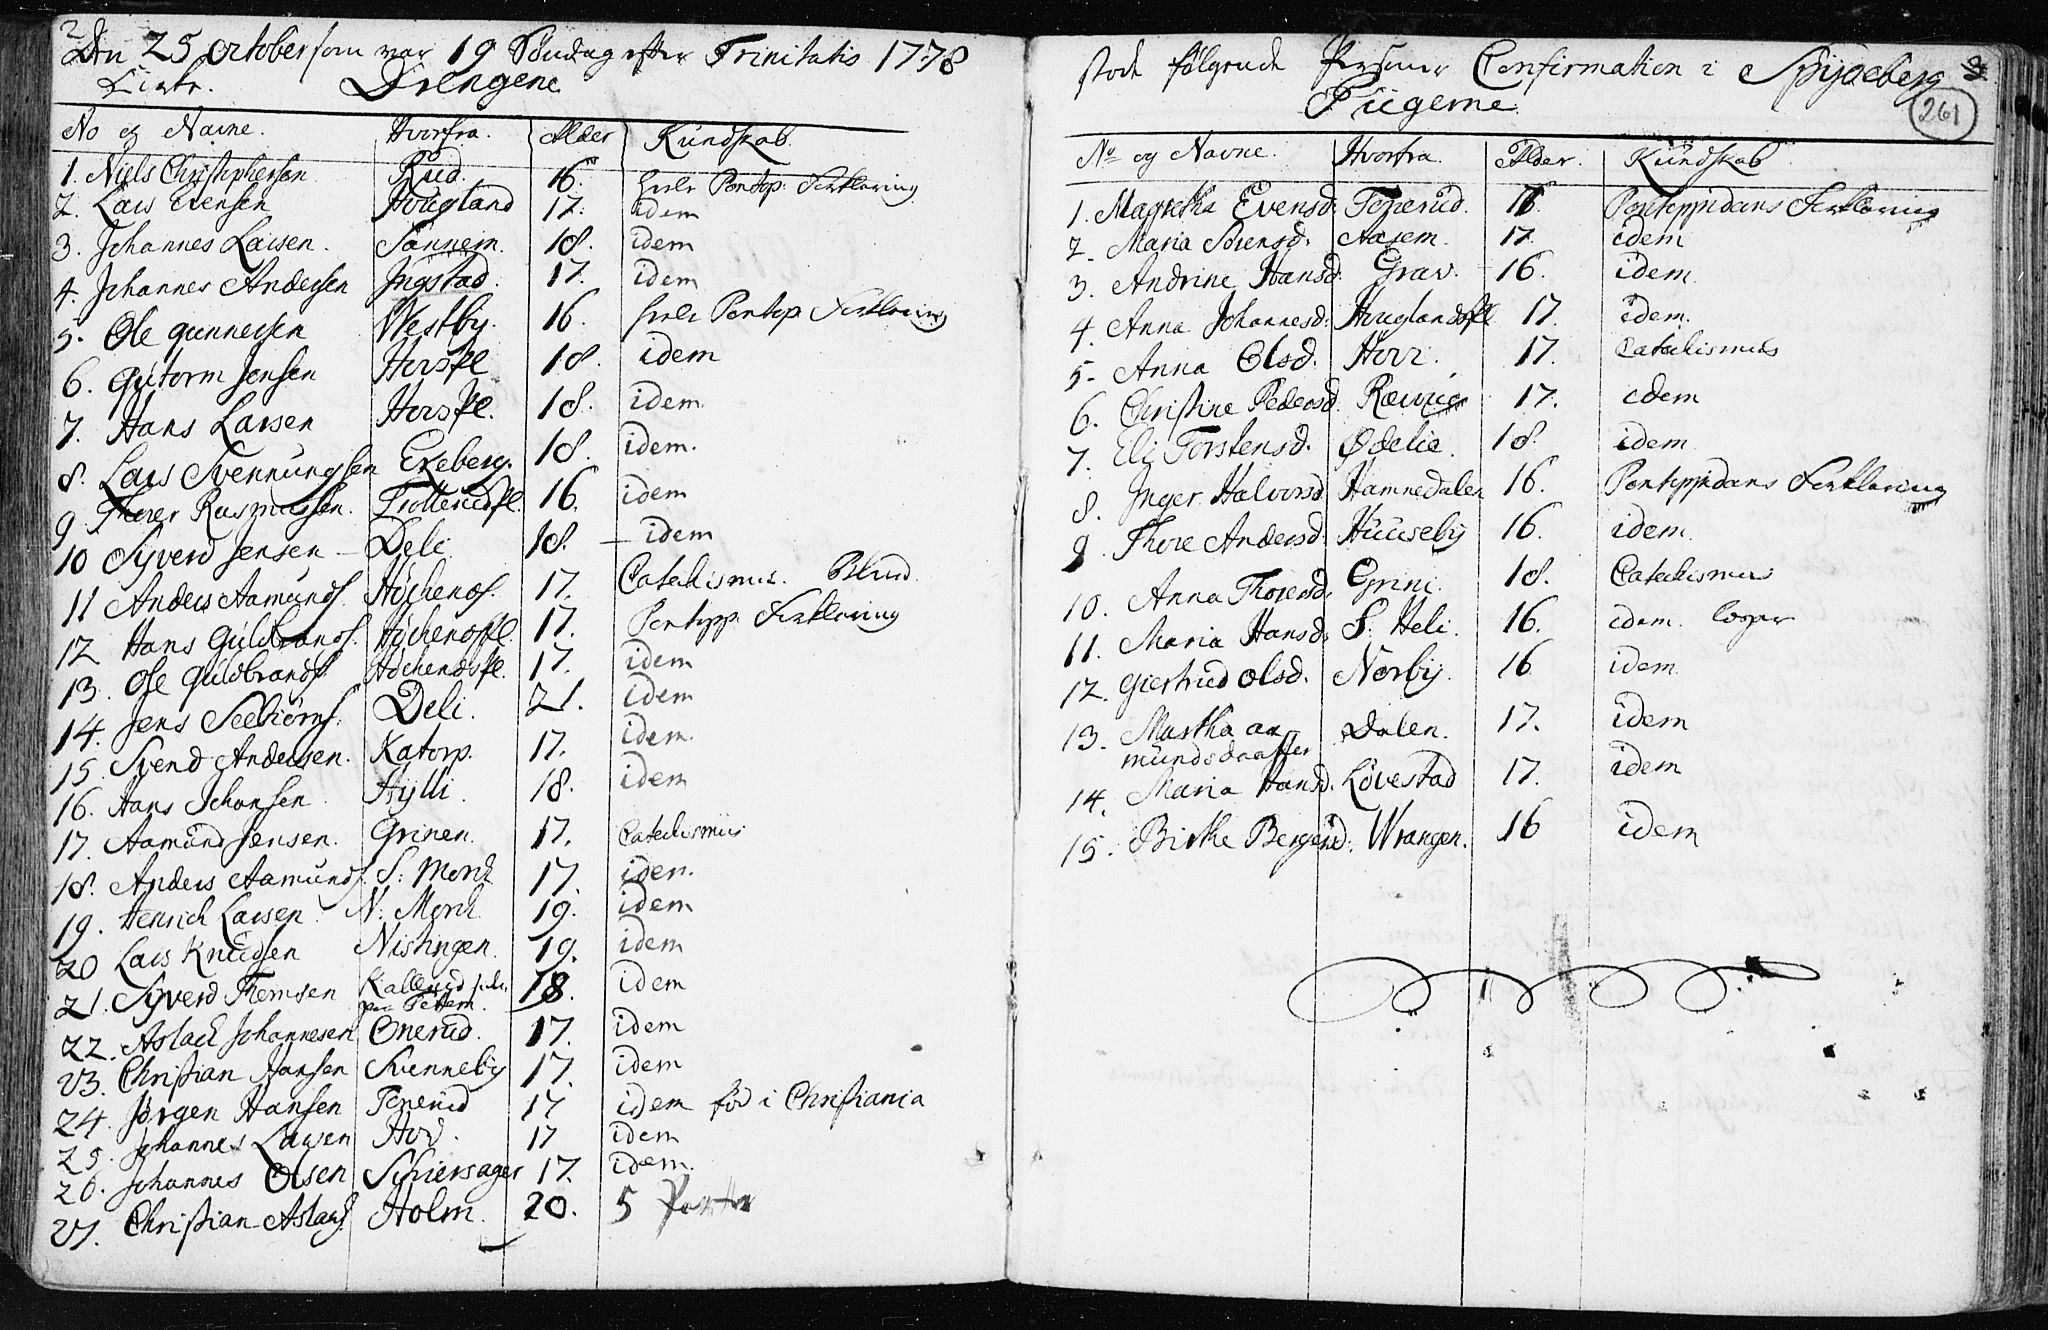 2
Den 25 October som var 19 Söndag efter Trinitatis 1778
Kirke. Drengene
No og Navne. Hvorfra. Alder Kundskab
1. Niels Christophersen Rud. 16. heele Pontop: Forklaring
2. Lars Evensen Hougland 17. idem
3. Johannes Larsen. Sannem. 18. idem
4. Johannes Andersen Ingstad. 17. idem
5. Ole Gunnersen Westby. 16. heele Pontop Forklaring
6. Gutorm Jensen Hovspl 18. idem
7. Hans Larsen Hovspl. 18. idem.
8. Lars Svennungsen Ekeberg. 18. idem.
9. Thorer Rasmussen. Trotterudspl. 16. idem
10 Syverd Jensen – Deli 18. – idem
11 Anders Aamunds. Höchends. 17. Catechismus. Blind.
12 Hans Guldbrands. Höchendspl. 17. Pontopp. Forklaring
13. Ole Guldbrands. Höchendspl. 17. idem
14. Jens Seebiörns. Deli. 21. idem
15. Svend Andersen. Katorp. 17. idem.
16. Hans Johansen. Hylli. 18. idem
17. Aamund Jensen. Grinen. 17. Catechismus
18. Anders Aamunds. S: Mork 17. idem.
19. Henrich Larsen. N: Mork 19. idem
20 Lars Knudsen Nistingen. 19. idem
21. Syverd Thomsen Kallerud 18. idem
Tettem.
22. Aslack Johannesen Onerud. 17. idem
23. Christian Hansen Sunneby 17. idem
24. Jörgen Hansen Toperud 17 idem föd i Christiania
25. Johannes Larsen Hov. 17 idem
26. Johannes Olsen Schiersager 17. idem.
27. Christian Aslaks. Holm. 20. 5
stode følgende Personer Confirmation i Spydeberg
261
Piigerne.
No og Navne. Hvorfra. Alder. Kundskab
1. Magretha Evensd. Toperud. 18. Pontoppidans Forklaring
2. Maria Svensd. Aasem. 17. idem
3. Andrine Hansd. Grav. 16. idem
4. Anna Johannesd. Houglandspl 17. idem.
5. Anna Olsd. Hov. 17. Catechismus
6. Christine Pedersd. 17. idem
7. Eli Torstensd. Ødelie. 18. idem
8. Inger Halvorsd. Hamnedalen 16. Pontoppidans Forklaring
9 Thore Andersd. Huuseby 16. idem.
10. Anna Thoresd. Grini. 18. Catechismus
11. Maria Hansd. S. Heli. 16. idem.
12. Giertrud Olsd. Norby. 16 idem.
13. Martha aa- Dalen. 17. idem
mundsdaatter
14. Maria Hansd. Lövestad 17. idem
15. Birthe Bergersd. Wrangen. 16 idem